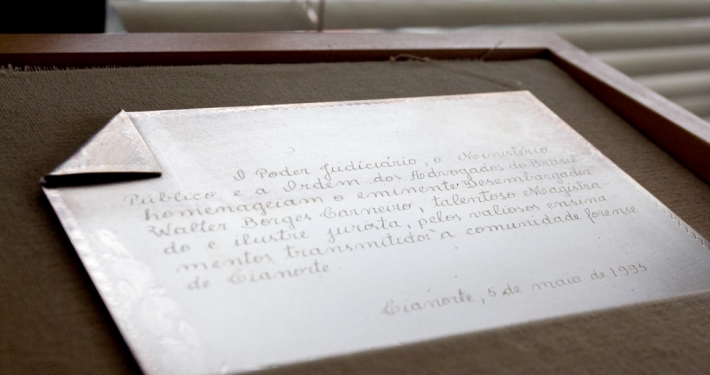 O Poder Judiciário, o Ministério
Público e a Ordem dos Advogados do Brasil
homenageiam o eminente Desembargador
Walter Borges Carneiro, talentoso Magistra-
do e ilustre jurista, pelos valiosos ensina-
mentos transmitidos à comunidade forense
de Cianorte.
Cianorte, 5 de maio de 1995